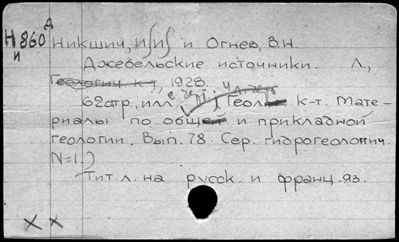 Н 860 Никшич, И[И] и Огнев, В.Н.
Джебельские источники. Л.,
Геологич. к-т, 1928.
62стр, илл. (Геол. к-т. Мате-
риалы по общей и прикладной
геологии. Вып. 78. Сер. гидрогеологич.
N=1.)
Тит. л. на русск. и франц. яз.